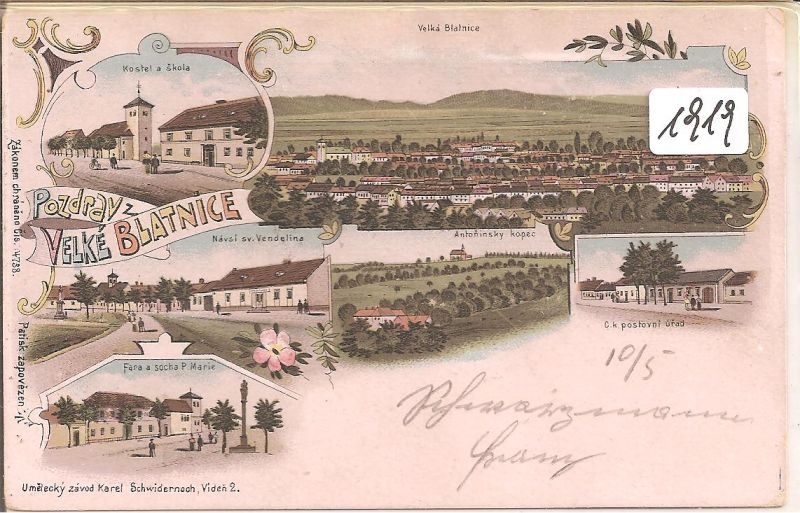 Velká Blatnice
Kostel a škola
1919
Pozdrav z
VELKÉ BLATNICE
Zákonem chráněno čís. 4738.
Návsí sv. Vendelina
Antonínsky kopec
C.k. poštovní úřad
10/5
Fara a socha P. Marie
Patisk zapovězen
Schwarzmann
Franz
Umělecký závod Karel Schwidernoch, Videň 2.